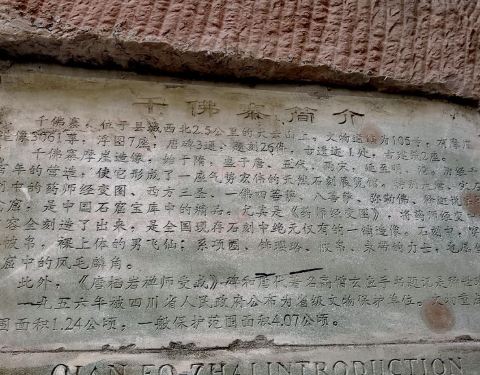 千佛寨简介
千佛寨，位于县城西北2.5公里的大云山上，文物造像为105号，有摩崖
造像3061尊，浮图7座，唐碑3通，题刻26件，古造道1处，古造炕2座。
千佛寨摩崖造像，始于隋，盛于唐、五代、两宋，延至明、清、
若年的营造，使它形成了一座气势宏伟的天然石刻展览馆。
刻中的药师经变图、西方三圣、一佛四菩萨、八菩萨、弥勒佛、释迦说
窟，是中国石窟宝库中的精品。尤其是《药师经变图》，将药师经变
容全刻造了出来，是全国现存石刻中绝无仅有的一铺造像。石刻中，
帔帛，裸上体的男飞仙；系项圈，佩璎珞、帔帛、
窟中的凤毛麟角。
此外，《唐栖岩禅师受戒》碑和唐代著名高僧玄
一九五六年被四川省人民政府公布为省级文物保护单位。
围面积1.24公顷，一般保护范围面积4.07公顷。
QIAN FO ZHAI INTRODUCTION